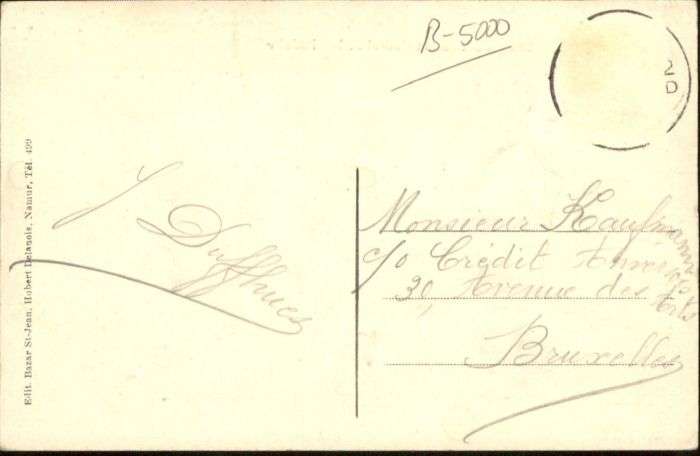 B-5000
20
Edit. Bazar St-Jean, Hubert Delanois, Namur, Tél. 499
J Duffhues
Monsieur Kaufmann
c/o Crédit Anversois
30, Avenue des Arts
Bruxelles